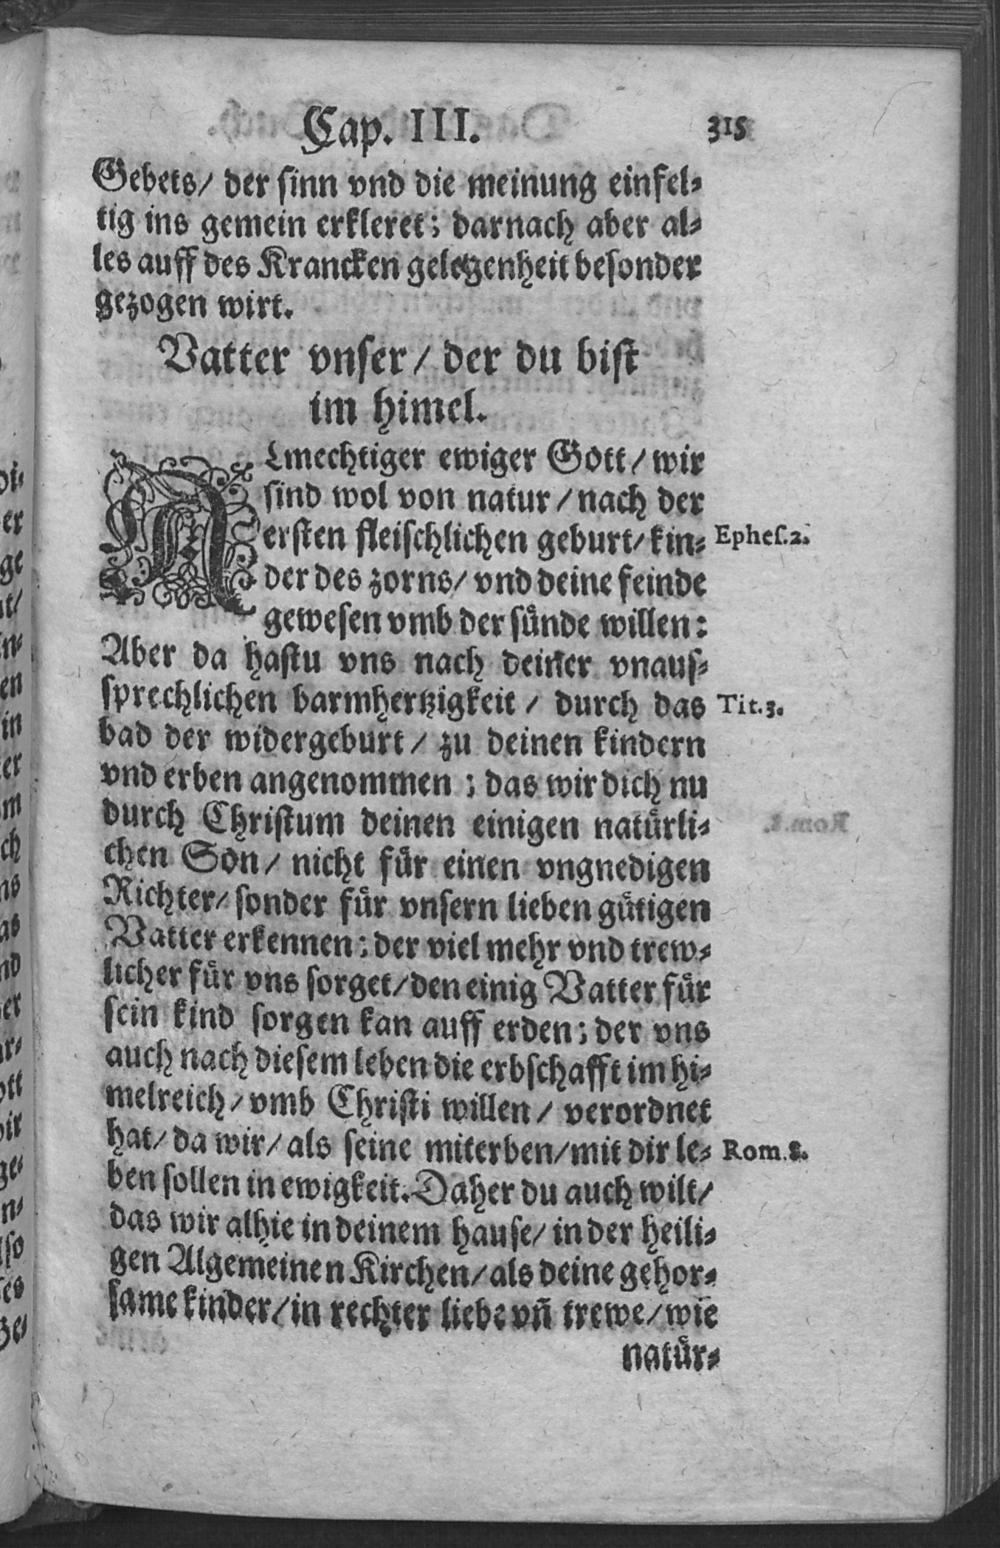 Cap. III. 315
Gebets/ der sinn vnd die meinung einfel-
tig ins gemein erkleret; darnach aber al-
les auff des Krancken gelegenheit besonder
gezogen wirt.
Vatter vnser/ der du bist
im himel.
ALmechtiger ewiger Gott/ wir
sind wol von natur/ nach der
ersten fleischlichen geburt/ kin- Ephes.2.
der des zorns/ vnd deine feinde
gewesen vmb der sünde willen:
Aber da hastu vns nach deiner vnaus-
sprechlichen barmhertzigkeit/ durch das Tit.3.
bad der widergeburt/ zu deinen kindern
vnd erben angenommen; das wir dich nu
durch Christum deinen einigen natürli-
chen Son/ nicht für einen vngnedigen
Richter/ sonder für vnsern lieben gütigen
Vatter erkennen: der viel mehr vnd trew-
licher für vns sorget/ den einig Vatter für
sein kind sorgen kan auff erden; der vns
auch nach diesem leben die erbschafft im hi-
melreich/ vmb Christi willen/ verordnet
hat/ da wir/ als seine miterben/ mit dir le- Rom.8.
ben sollen in ewigkeit. Daher du auch wilt/
das wir alhie in deinem hause/ in der heili-
gen Algemeinen Kirchen/ als deine gehor-
same kinder/ in rechter liebe vñ trewe/ wie
natür-